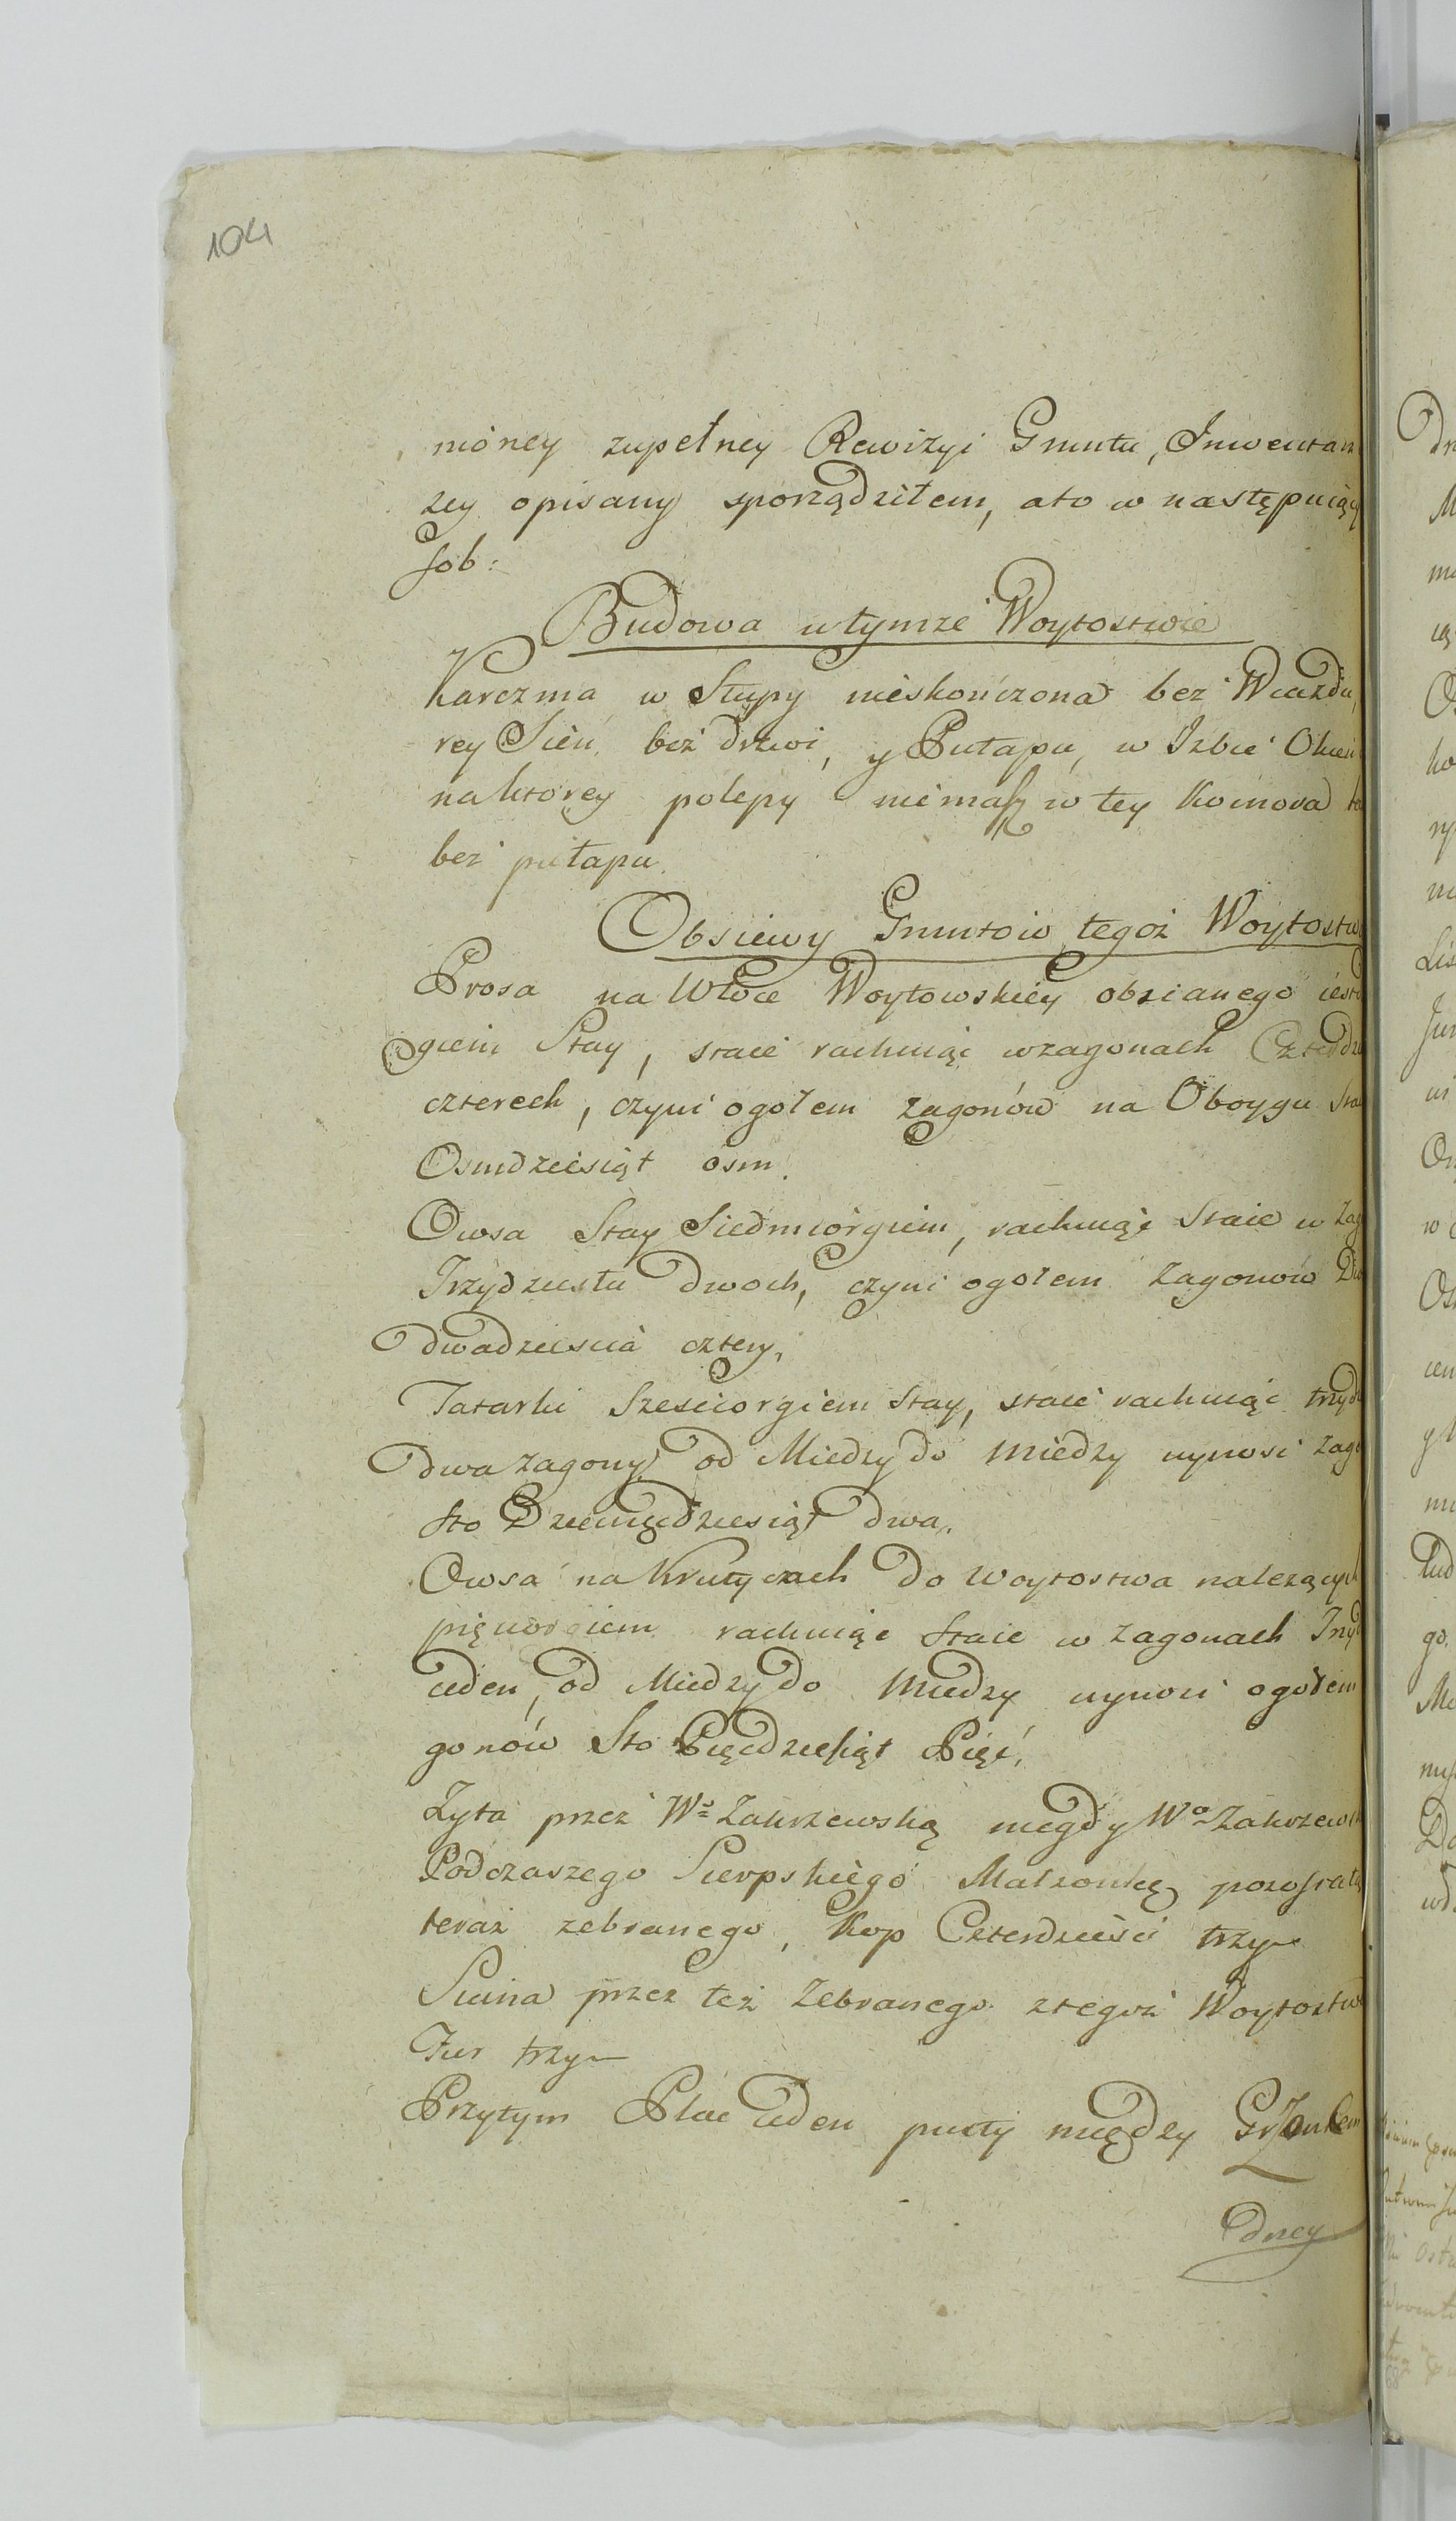 104
nioney zupełney Rewizyi Gruntu, Inwentarz
zey opisany sporządziłem, ato w następuiący
sob:
Budowa wtymze Woytostwie
Karczma w Słupy nieskończona bez Wiazdu,
rey Sień bez drzwi, y Pułapu, w Izbie Okien
naktorey polepy niemasz w tey Komora
bez pułapu.
Obsiewy Gruntow tegoż Woytostw
Prosa na Włoce Woytowskiey obsianego iest
giem Stay, staie rachuiąc wzagonach Czterdzi
czterech, czyni ogołem zagonów na Oboygu Sta
Osmdziesiąt osm.
Owsa Stay Siedmiorgiem, rachuiąc Staie w Zag
Trzydziestu dwoch, czyni ogołem Zagonow Dw
dwadziescia cztery,
Tatarki Szesciorgiem Stay, staie rachuiąc trzydz
dwa zagony od Miedzy do Miedzy wynosi Zago
sto Dziewięcdziesiąt dwa.
Owsa na Krutyczach do Woytostwa należących
pięciorgiem rachuiąc Staie w Zagonach Trzyd
ieden, od Miedzy do Miedzy wynosi ogołem
gonów Sto Pięcdziesiąt Pięć,
Zyta przez Wą Zakrzewską niegdy Wo Zakrzewsk
Podczaszego Sierpskiego Małzonkę pozostałą
teraz zebranego, Kop Czterdzieści trzy
Siana przez też Zebranego ztegoż Woytostw
Fur trzy
Przytym Plac ieden pusty między